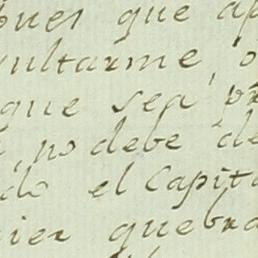 pues que ap
sultarme, o
que sea pr
, no debe de
do el Capita
ier quebra